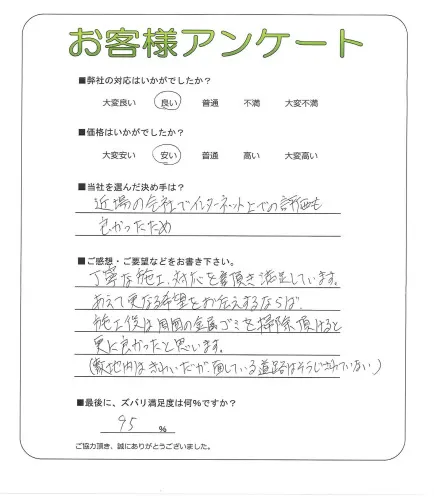 お客様アンケート
■弊社の対応はいかがでしたか？
大変良い 良い 普通 不満 大変不満
■価格はいかがでしたか？
大変安い 安い 普通 高い 大変高い
■当社を選んだ決め手は？
近場の会社でインターネット上での評価も
良かったため
■ご感想・ご要望などをお書き下さい。
丁寧な施工、対応を頂き満足しています。
あえて更なる希望をお伝えするならば、
施工後は周囲の金属ゴミを掃除頂けると
更に良かったと思います。
(敷地内はきれいだが、面している道路はそうじされていない)
■最後に、ズバリ満足度は何％ですか？
95 %
ご協力頂き、誠にありがとうございました。